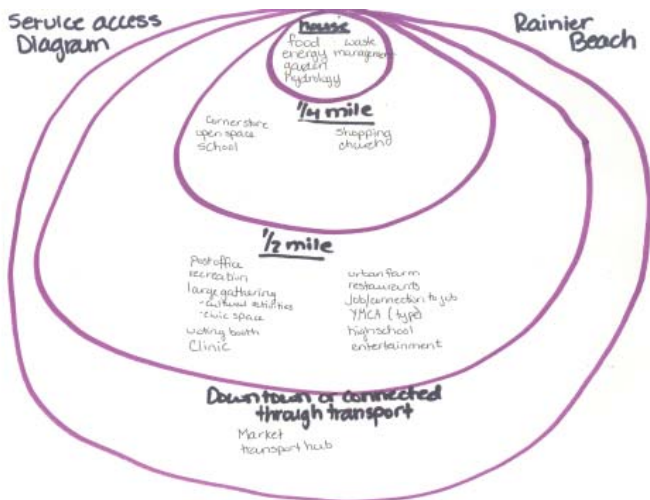 Service access
Diagram
Rainier
Beach
house
food waste
energy management
garden
hydrology
1/4 mile
Cornerstore
open space
school
shopping
church
1/2 mile
Post office
recreation
large gathering
-cultural activities
-civic space
voting booth
Clinic
urban farm
restaurants
Job/connection to job
YMCA (type)
highschool
entertainment
Downtown or connected
through transport
Market
transport hub